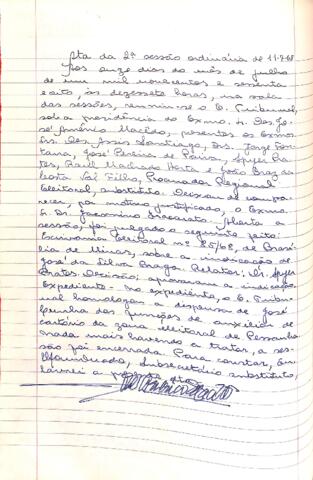 Ata da 2ª sessão ordinária de 11-7-68
Aos onze dias do mês de julho
de um mil novecentos e sessenta
e oito, às dezessete horas, na sala
das sessões, reuniu-se o E. Tribunal,
sob a presidência do Exmo. Sr. Des. Jo-
sé Américo Macêdo, presentes os Exmos.
Srs. Des. Assis Santiago, Drs. Jorge Fon-
tana, José Pereira de Paiva,
Prates, Raul Machado Horta e João Braz da
Costa Val Filho, Procurador Regional
Eleitoral, substituto. Deixou de compa-
recer, por motivo justificado, o Exmo.
Sr. Dr. Jacomino Inacarato. Aberta a
sessão, foi julgado o seguinte feito:
Escrivania Eleitoral nº 25/68, de Brasí-
lia de Minas, sobre a indicação de
José da Silva Braga. Relator: Dr.
Prates. Decisão: aprovaram a indicação.
Expediente - No expediente, o E. Tribu-
nal homologou a dispensa de José
Cunha das funções de auxiliar de
cartório da zona eleitoral de Peçanha.
Nada mais havendo a tratar, a ses-
são foi encerrada. Para constar, eu
subsecretário substituto,
lavrei a presente ata.